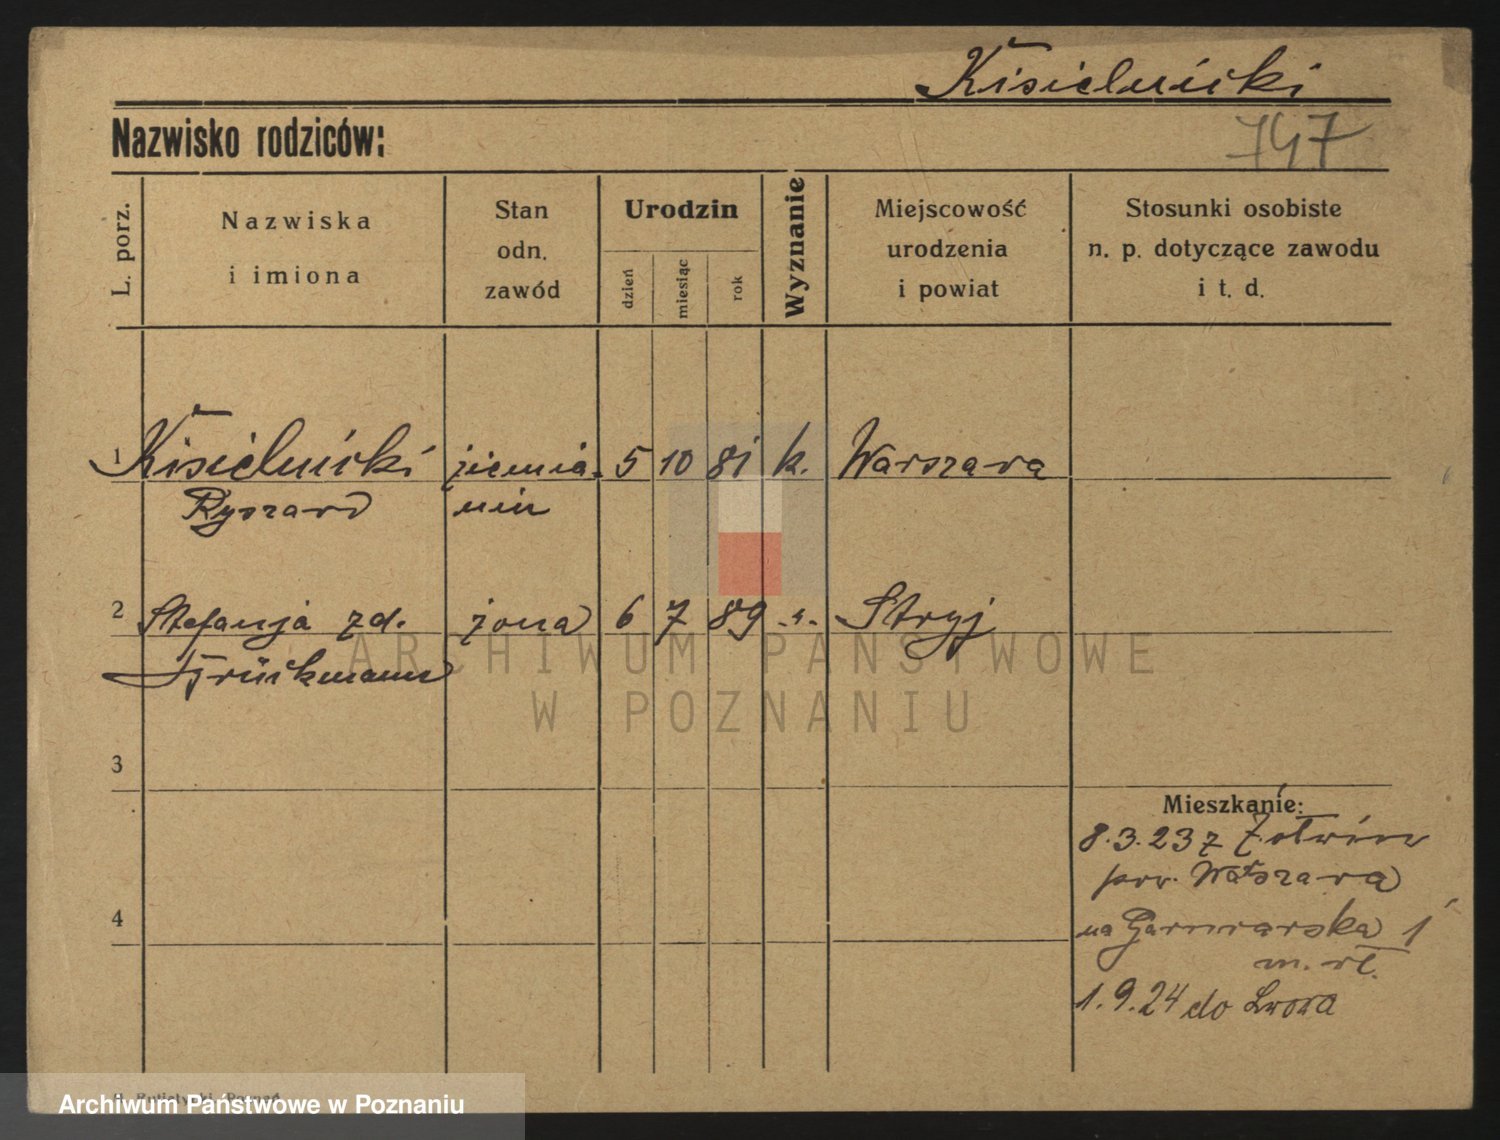 Kisielnicki
Nazwisko rodziców:
747
L. porz.
Nazwiska
i imiona
Stan
odn.
zawód
Urodzin
dzień
miesiąc
rok
Wyznanie
Miejscowość
urodzenia
i powiat
Stosunki osobiste
n. p. dotyczące zawodu
i t. d.
1 Kisielnicki ziemia- 5 10 81 k. Warszawa
Ryszard nin
2 Stefanja zd. żona 6 7 89 -"- Stryj
Brückmann
ARCHIWUM PAŃSTWOWE
W POZNANIU
3
Mieszkanie:
8.3.23 z Żółwin
pow. Warszawa
4
na Garncarska 1
m. wł.
1.9.24 do Lwowa
Archiwum Państwowe w Poznaniu